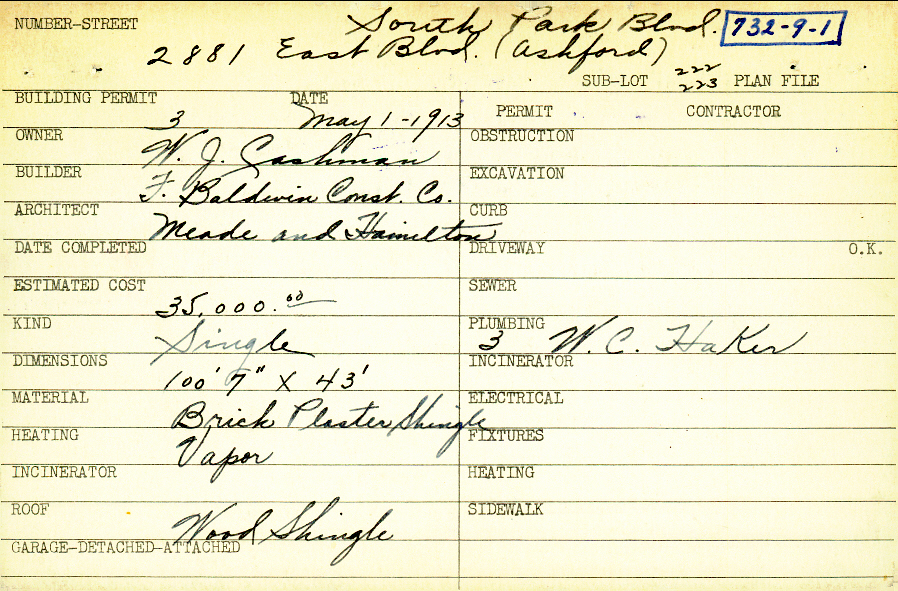 NUMBER-STREET South Park Blvd. 732-9-1
2881 East Blvd. (Ashford)
SUB-LOT 222 223 PLAN FILE
BUILDING PERMIT 3 DATE May 1-1913
PERMIT CONTRACTOR
OWNER W. J. Cashman
OBSTRUCTION
BUILDER F. Baldwin Const. Co.
EXCAVATION
ARCHITECT Meade and Hamilton
CURB
DATE COMPLETED
DRIVEWAY O.K.
ESTIMATED COST 35,000.00
SEWER
KIND Single
PLUMBING 3 W. C. Haker
DIMENSIONS 100' 7" X 43'
INCINERATOR
MATERIAL Brick Plaster Shingle
ELECTRICAL
HEATING Vapor
FIXTURES
INCINERATOR
HEATING
ROOF Wood Shingle
SIDEWALK
GARAGE-DETACHED-ATTACHED